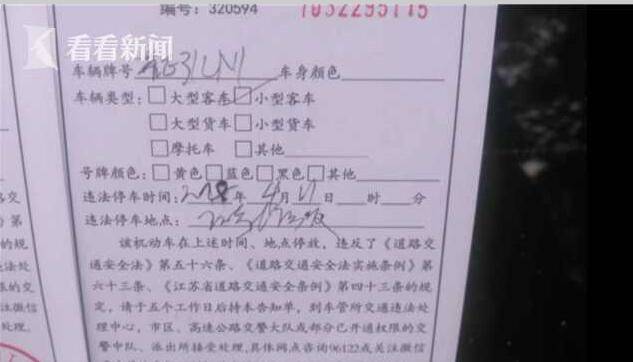 编号：320594 1032295115
看看新闻
车辆牌号 车身颜色
车辆类型：□大型客车 □小型客车
□大型货车 □小型货车
□摩托车 □其他
号牌颜色：□黄色□蓝色□黑色□其他
违法停车时间：2018年4月11日 时 分
违法停车地点：
该机动车在上述时间、地点停放，违反了《道路交
通安全法》第五十六条、《道路交通安全法实施条例》第
六十三条、《江苏省道路交通安全条例》第四十三条的规
定，请于五个工作日后持本告知单，到车管所交通违法处
理中心，市区、高速公路交警大队或部分已开通权限的交
警中队、派出所接受处理，具体网点咨询96122或关注微信
路交
》第
的规
法处
的交
注微信
处理。